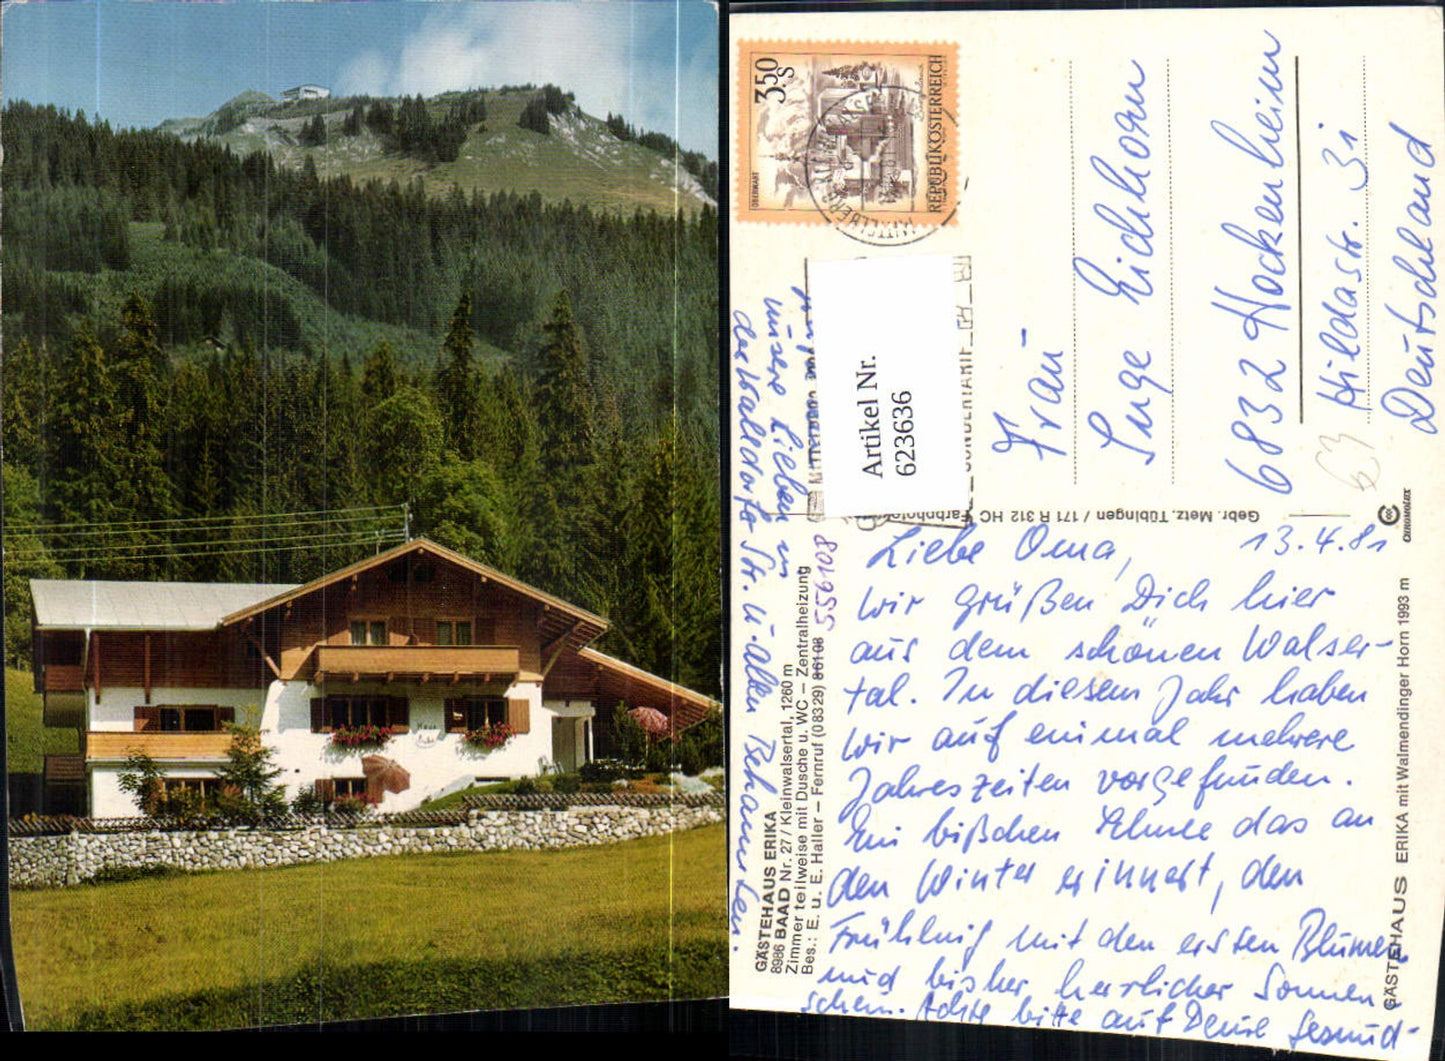 Haus
REPUBLIK ÖSTERREICH
3.50
S
OBERWART
Artikel Nr.
623636
Frau
Inge Eichhorn
6832 Hockenheim
Hildastr. 31
Deutschland
63
Gebr. Metz, Tübingen / 171 R 312 HC Farbphoto
CHROMOLUX
13.4.81
Liebe Oma,
wir grüßen Dich hier
aus dem schönen Walser-
tal. In diesem Jahr haben
wir auf einmal mehrere
Jahreszeiten vorgefunden.
Ein bißchen Schnee das an
den Winter erinnert, den
Frühling mit den ersten Blumen
und bisher herrlicher Sonnen-
schein. Achte bitte auf Deine Gesund-
unsere Lieben in
der Walldorfer Str. u. allen Bekannten.
GÄSTEHAUS ERIKA
8986 BAAD Nr. 27 / Kleinwalsertal, 1260 m
Zimmer teilweise mit Dusche u. WC – Zentralheizung
Bes.: E. u. E. Haller – Fernruf (08329) 86108
556108
GÄSTEHAUS ERIKA mit Walmendinger Horn 1993 m